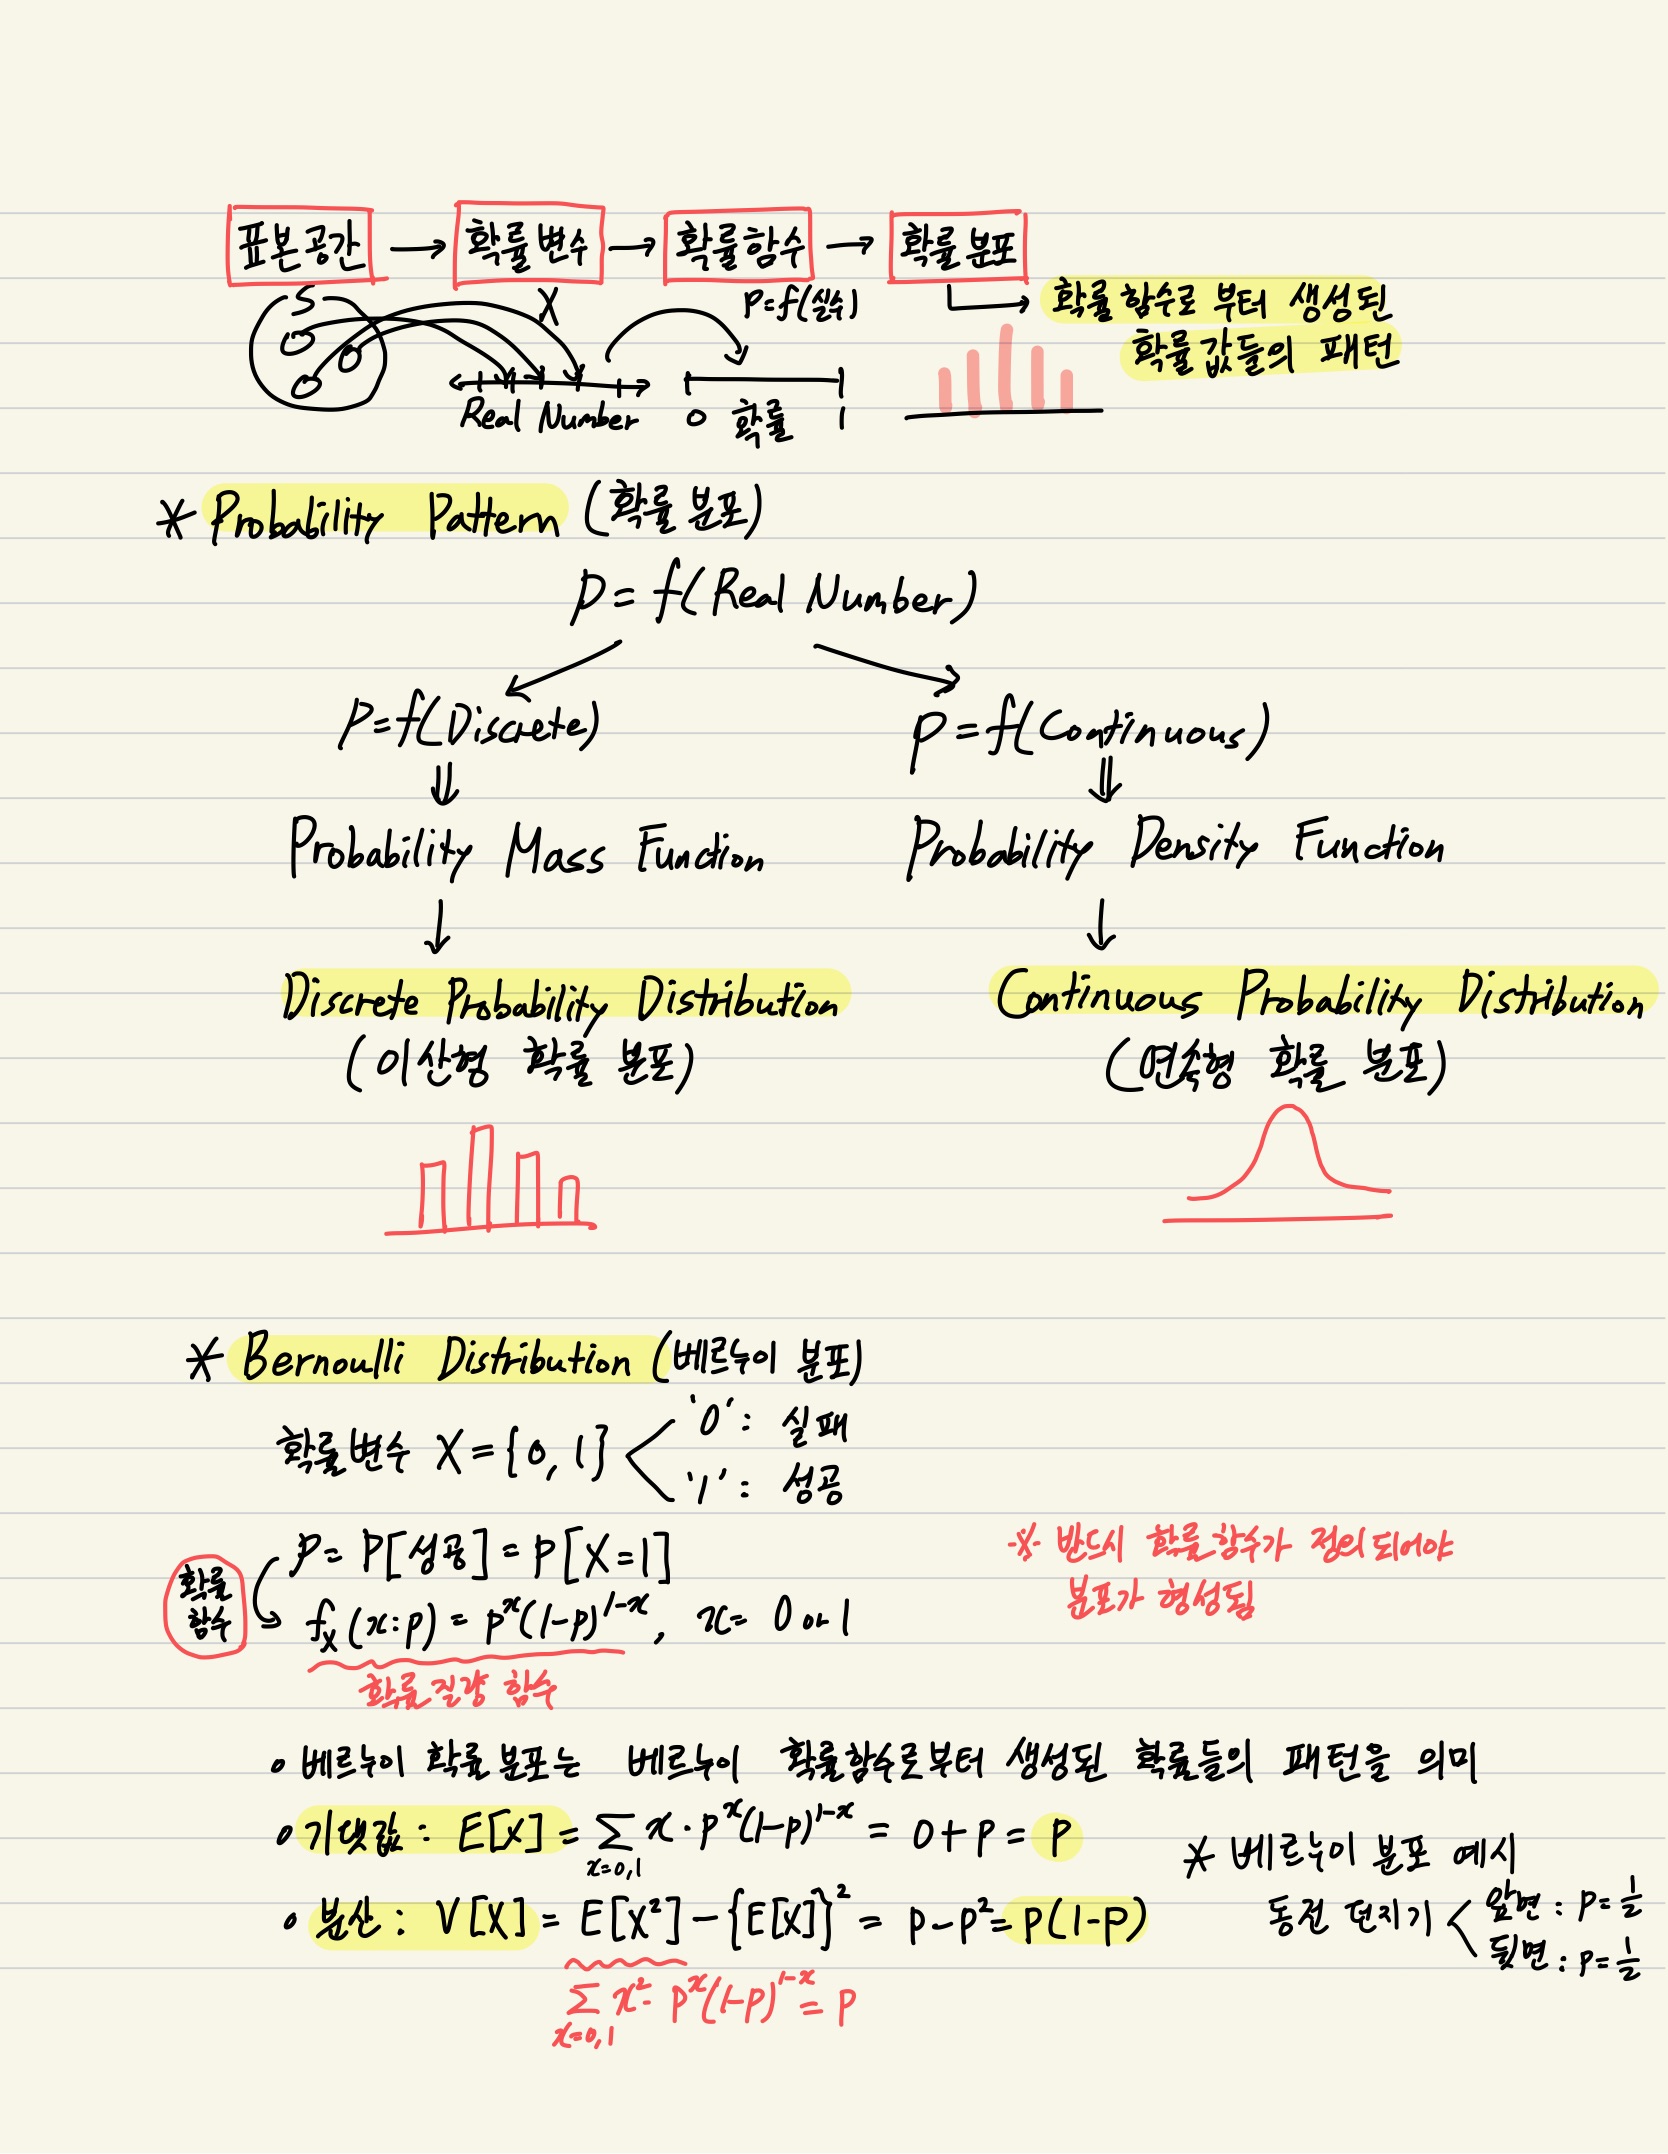 표본공간 → 확률변수 → 확률함수 → 확률분포
S X P=f(실수) → 확률 함수로 부터 생성된
확률값들의 패턴
Real Number 0 확률 1
* Probability Pattern (확률 분포)
P = f(Real Number)
P=f(Discrete) P=f(Continuous)
Probability Mass Function Probability Density Function
Discrete Probability Distribution Continuous Probability Distribution
(이산형 확률 분포) (연속형 확률 분포)
* Bernoulli Distribution (베르누이 분포)
'0' : 실패
확률변수 X = {0, 1}
'1' : 성공
P = P[성공] = P[X=1] ※ 반드시 확률함수가 정의되어야
확률 함수 f_X(x:p) = p^x(1-p)^{1-x}, x= 0 or 1 분포가 형성됨
확률질량 함수
o 베르누이 확률분포는 베르누이 확률함수로부터 생성된 확률들의 패턴을 의미
o 기댓값 : E[X] = ∑_{x=0,1} x · p^x(1-p)^{1-x} = 0 + p = p
* 베르누이 분포 예시
o 분산 : V[X] = E[X²] - {E[X]}² = p - p² = p(1-p)
동전 던지기 앞면 : p=1/2
뒷면 : p=1/2
∑_{x=0,1} x²· p^x(1-p)^{1-x} = p